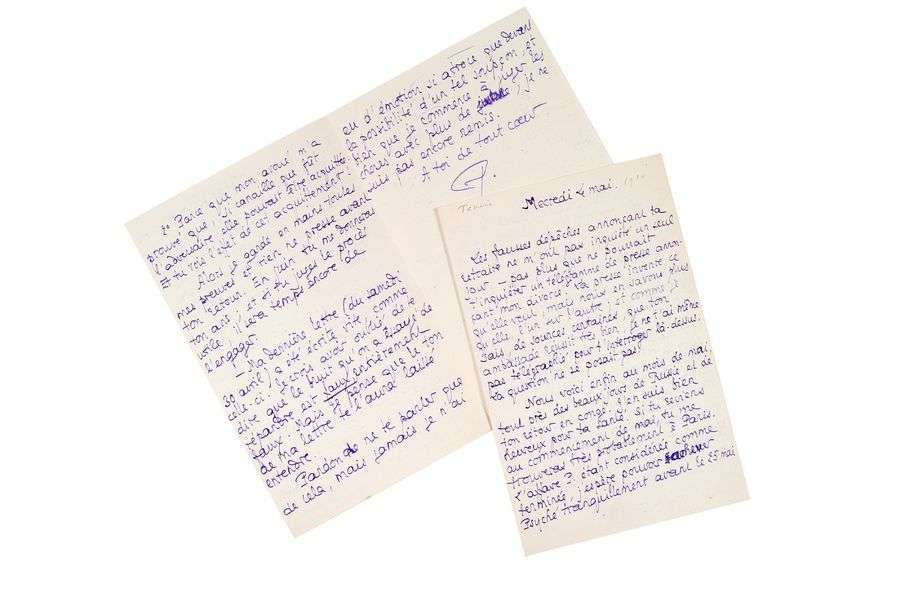 Mecredi 4 mai. 1910
Les fausses dépêches annonçant ta
retraite ne m'ont pas inquiété un seul
jour — pas plus que ne pouvait
t'inquiéter un télégramme de presse annon-
çant mon divorce. La presse invente ce
qu'elle veut, mais nous en savons plus
qu'elle l'un sur l'autre, et comme je
sais de sources certaines que ton
ambassade légitime, bien, je ne t'ai même
pas télégraphié pour t'interroger là-dessus.
La question ne se posait pas.
Nous voici enfin au mois de mai,
tout près des beaux jours de Tunis et de
ton retour en congé. J'en suis bien
heureux pour ta santé. Si tu reviens
au commencement de mai, tu me
trouveras très probablement à Paris.
L'affaire P. étant considérée comme
terminée, j'espère pouvoir
Psyché tranquillement avant le 25 mai
2° Parce que mon avoué m'a
prouvé que, si canaille que fût
l'adversaire, elle pouvait être acquittée.
Et tu vois l'effet de cet acquittement:
Alors je garde en mains toutes
mes preuves et rien ne presse avant
ton retour. En juin tu me donneras
ton avis, et si tu juges le procès
utile il sera temps encore de
l'engager.
— Ma dernière lettre (du samedi
30 avril) a été écrite vite, comme
celle-ci. Je crois avoir oublié de te
dire que le bruit qu'on a essayé de
répandre est faux, entièrement
faux. Mais je pense que le ton
de ma lettre te l'aura laissé
entendre.
Pardon de ne te parler que
de cela, mais jamais je n'ai
eu d'émotion si atroce que devant
la possibilité d'un tel soupçon, et
bien que je commence à juger les
choses avec plus de , je ne
suis pas encore remis.
A toi de tout cœur
P.